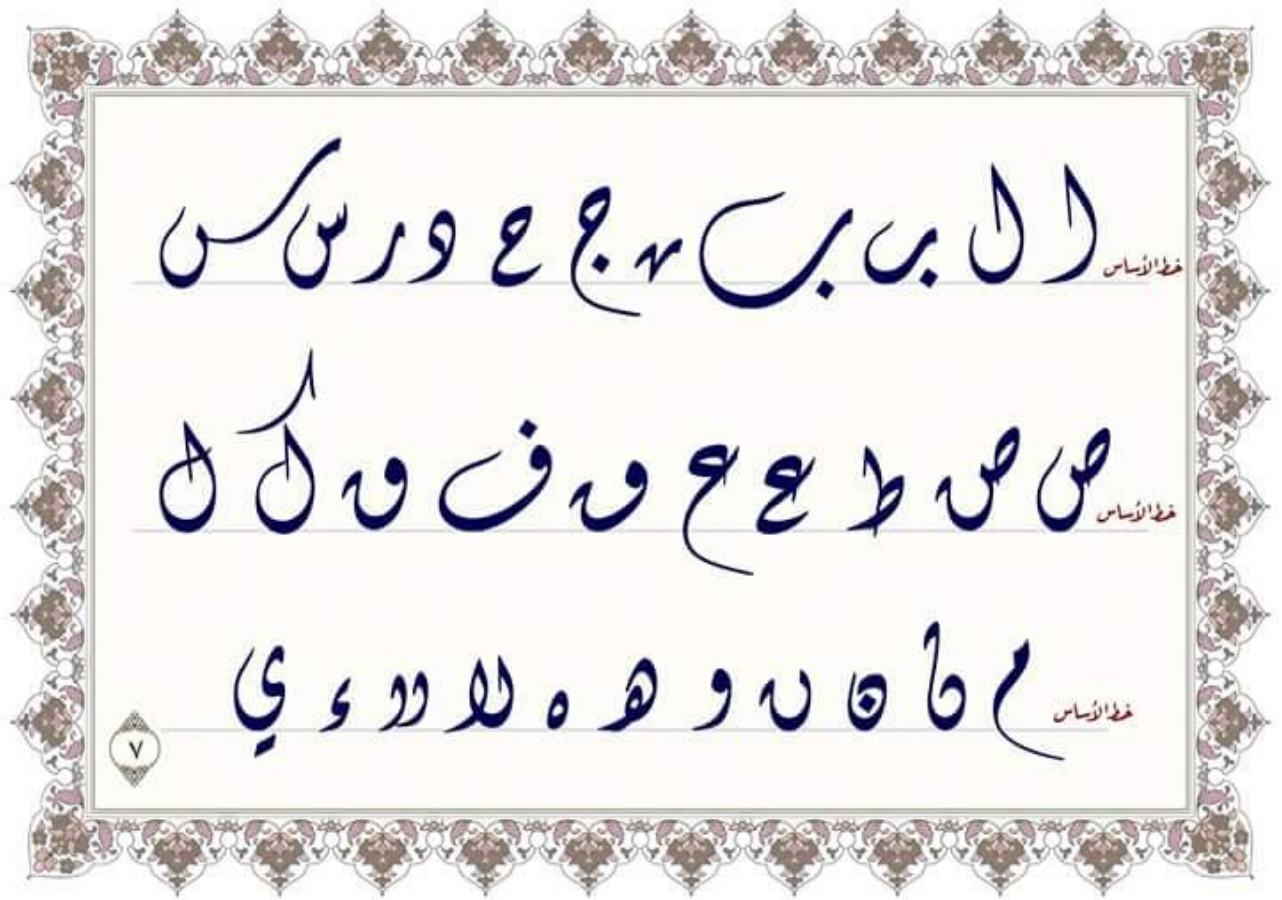 خط الأساس ا ل ب ب ﮩ ج ح د ر س س
خط الأساس ص ص ط ع ع ق ف ق ك ل
خط الأساس م ن ن ں و ه ه لا د د ء ي
٧